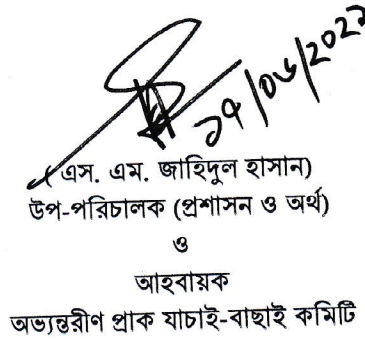 (এস. এম. জাহিদুল হাসান)
উপ-পরিচালক (প্রশাসন ও অর্থ)
ও
আহবায়ক
অভ্যন্তরীণ প্রাক যাচাই-বাছাই কমিটি